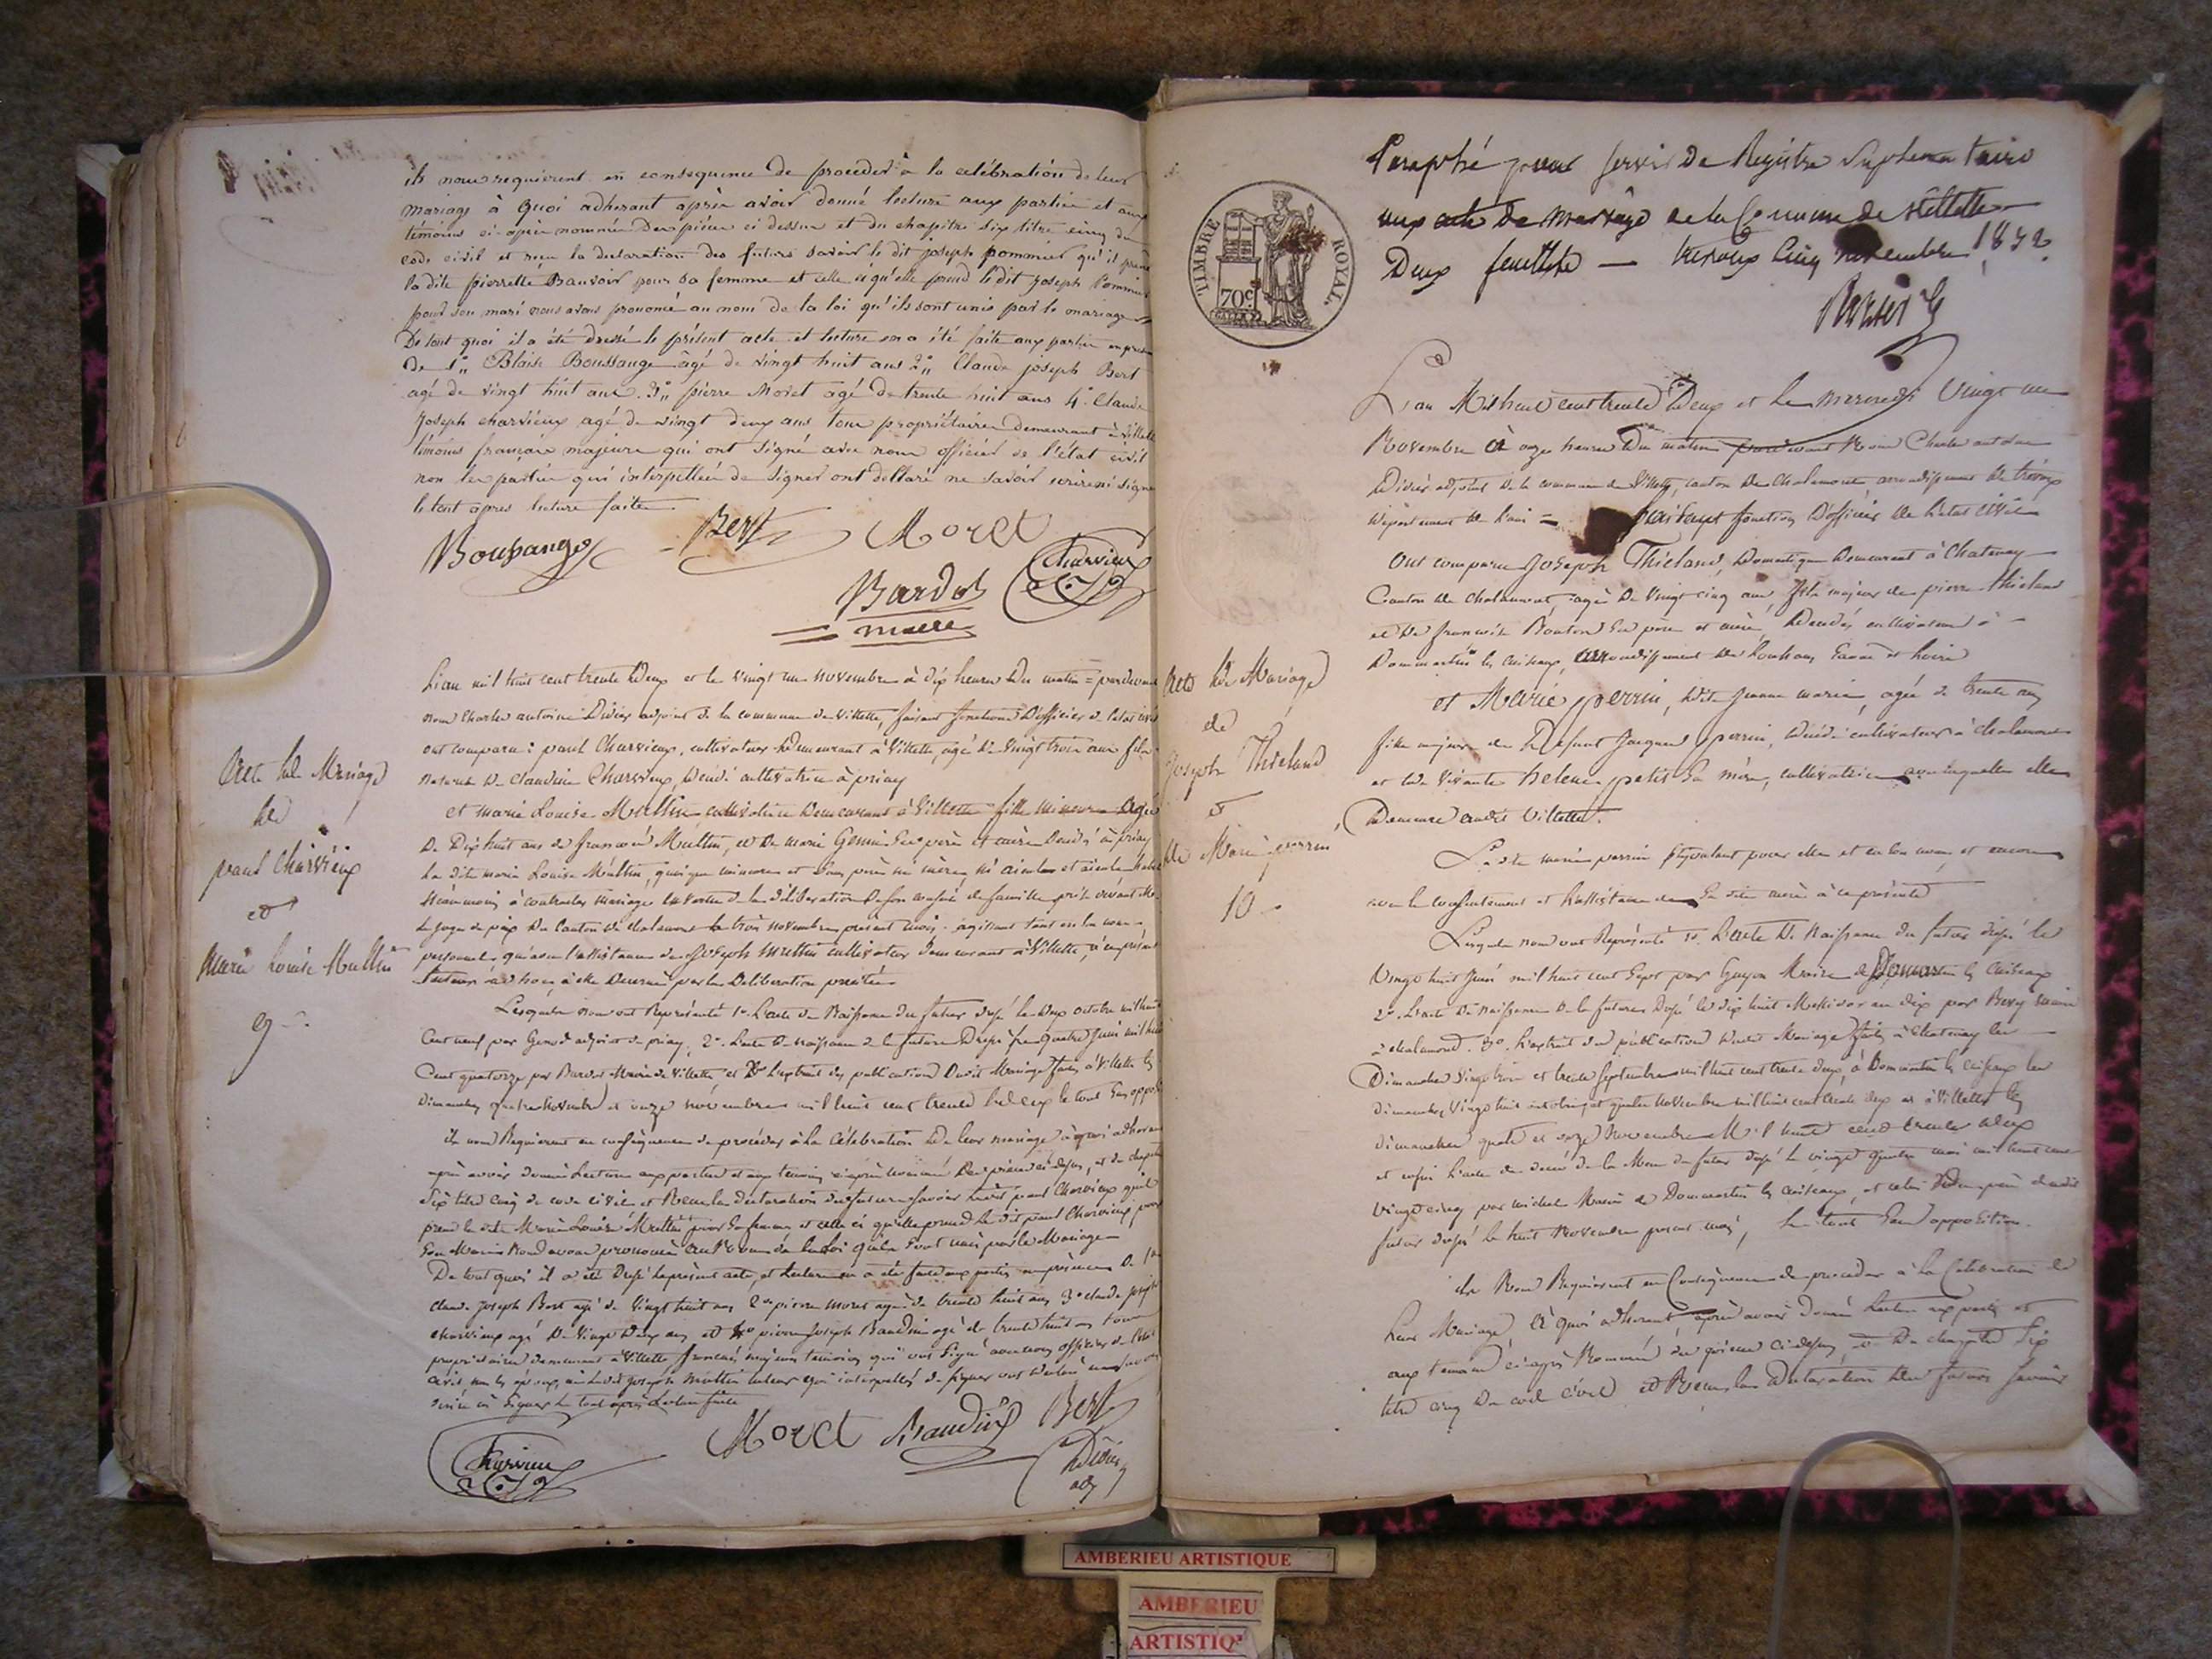 ils nous requièrent en conséquence de procéder à la célébration de leur
mariage à quoi adhérant après avoir donné lecture aux parties et aux
témoins ci-après nommés des pièces ci dessus et du chapitre six titre cinq du
code civil et reçu la déclaration des futurs savoir le dit joseph pommier qu'il prend
la dite pierrette Bauvoir pour sa femme et celle ci qu'elle prend le dit joseph Pommier
pour son mari nous avons prononcé au nom de la loi qu'ils sont unis par le mariage
De tout quoi il a été dressé le présent acte et lecture en a été faite aux parties en
de 1° Blaise Boussange âgé de vingt huit ans 2° Claude joseph Bert
agé de vingt huit ans 3° pierre Moret agé de trente huit ans 4° Claude
Joseph charvieux agé de vingt deux ans tous propriétaires demeurant à Villette
témoins français majeurs qui ont signé avec nous officier de l'état civil
non les parties qui interpellées de signer ont déclaré ne savoir écrire ni signer
le tout après lecture faite
Boussange Bert Moret
Charvieux
Bardol
maire
L'an mil huit cent trente deux et le vingt un novembre à dix heures du matin = pardevant
nous Charles antoine Didier adjoint de la commune de Villette, faisant fonctions d'officier de l'état civil
ont comparu : paul Charvieux, cultivateur demeurant à Villette, agé de vingt trois ans fils
naturel de claudine Charvieux, cultivatrice à priay
et marie Louise Mullin cultivatrice demeurant à Villette fille mineure agée
de Dix huit ans de françois Mullin, et de marie père et mère à priay
la dite marie Louise Mullin, quoique mineure et sans père ni mère ni aieules
néanmoins à contracter mariage en vertu de la délibération de son conseil de famille
le juge de paix du Canton de chalamont le trois novembre présent mois agissant tant en son nom
personnel qu'avec l'assistance de Joseph Mullin cultivateur demeurant à Villette,
tuteur par la Délibération précitée
Lesquels nous ont Représenté 1° L'acte de Naissance du futur Dressé le deux octobre mil huit
Cent neuf par adjoint de priay, 2° L'acte de naissance de la future Dressé le quatre juin mil huit
Cent quatorze par Bardol Maire de Villette, et L'extrait des publications Dudit Mariage faites à Villette les
Dimanches quatre novembre et onze novembre mil huit cent trente deux le tout sans opposition
ils nous Requièrent en conséquence de procéder à la Célébration de leur mariage à quoi adhérant
après avoir donné Lecture aux parties et aux témoins ci après nommés Des pièces ci dessus, et du chapitre
Six titre Cinq du code civil et Reçu la déclaration des futurs savoir ledit paul Charvieux qu'il
prend la dite Marie Louise Mullin pour sa femme et celle ci qu'elle prend le dit paul Charvieux pour
Son Mari Nous avons prononcé au Nom de la Loi qu'ils sont unis par le Mariage
De tout quoi il a été Dressé le présent acte, et lecture en a été faite aux parties en présence de 1°
claude Joseph Bert agé de vingt huit ans 2° pierre moret agé de trente huit ans 3° claude joseph
charvieux agé De vingt Deux ans et 4° pierre Joseph Baudin agé de trente huit ans tous
propriétaires demeurant à Villette, français majeurs témoins qui ont signé avec nous officier de l'état
civil non les époux, ni ledit Joseph Mullin tuteur qui interpellés de signer ont déclaré ne savoir
écrire ni signer le tout après lecture faite
Charvieux Moret Baudin Bert
Didier
adj
Acte de Mariage
de
paul Charvieux
et
Marie Louise Mullin
9
TIMBRE ROYAL
70c
Paraphé pour servir de Registre
aux actes de mariage de la Commune de Villette
Deux feuillets — trevoux Cinq novembre 1832
L'an Mil huit cent trente Deux et Le mercredi vingt un
Novembre à onze heures Du matin pardevant Nous Charles antoine
Didier adjoint de la commune de Villette, canton de chalamont arrondissement de trévoux
département de l'ain = faisant fonctions D'officier de l'état civil
Ont comparu Joseph Thieland, Domestique Demeurant à Chatenay
Canton de chalamont, agé De Vingt cinq ans, fils majeur de pierre thieland
et De françoise Bouton ses père et mère, Décédés cultivateurs à
Dommartin les cuiseaux, arrondissement de Louhans, Saone et Loire
et Marie perrin, dite jeanne marie, agée de trente ans
fille majeure de Défunt Jacques perrin, décédé cultivateur à chalamont
et de vivante helene petit sa mère, cultivatrice avec laquelle elle
Demeure audit Villette.
La dite marie perrin stipulant pour elle et en son nom, et encore
avec le consentement et L'assistance de sa dite mère à ce présente
Lesquels nous ont Représenté 1° L'acte De Naissance du futur dressé le
Vingt huit juin mil huit cent sept par Guyon Maire de Dommartin les Cuiseaux
2° L'acte De naissance de la future Dressé le dix huit Messidor an dix par maire
à chalamont. 3° L'extrait des publications dudit Mariage faites à Chatenay les
Dimanches vingt trois et trente Septembre mil huit cent trente deux, à Dommartin les cuiseaux les
Dimanches vingt huit octobre, et quatre Novembre mil huit cent trente deux et à Villette les
Dimanches quatre et onze Novembre Mil huit cent trente deux
et enfin L'acte de décès de la Mère du futur dressé le vingt quatre mai mil huit cent
vingt cinq par michel Maire de Dommartin les cuiseaux, et celui du père dudit
futur dressé le huit Novembre présent mois, le tout sans opposition.
ils Nous Requièrent en Conséquence de procéder à la Célébration de
Leur Mariage, à quoi adhérant après avoir donné Lecture aux parties et
aux témoins ci après Nommés des pièces ci dessus, et Du chapitre Six
titre cinq Du code civil et Reçu la Déclaration des futurs Savoir
Acte de Mariage
de
Joseph Thieland
&
de Marie perrin
10
AMBERIEU ARTISTIQUE
AMBERIEU
ARTISTIQ